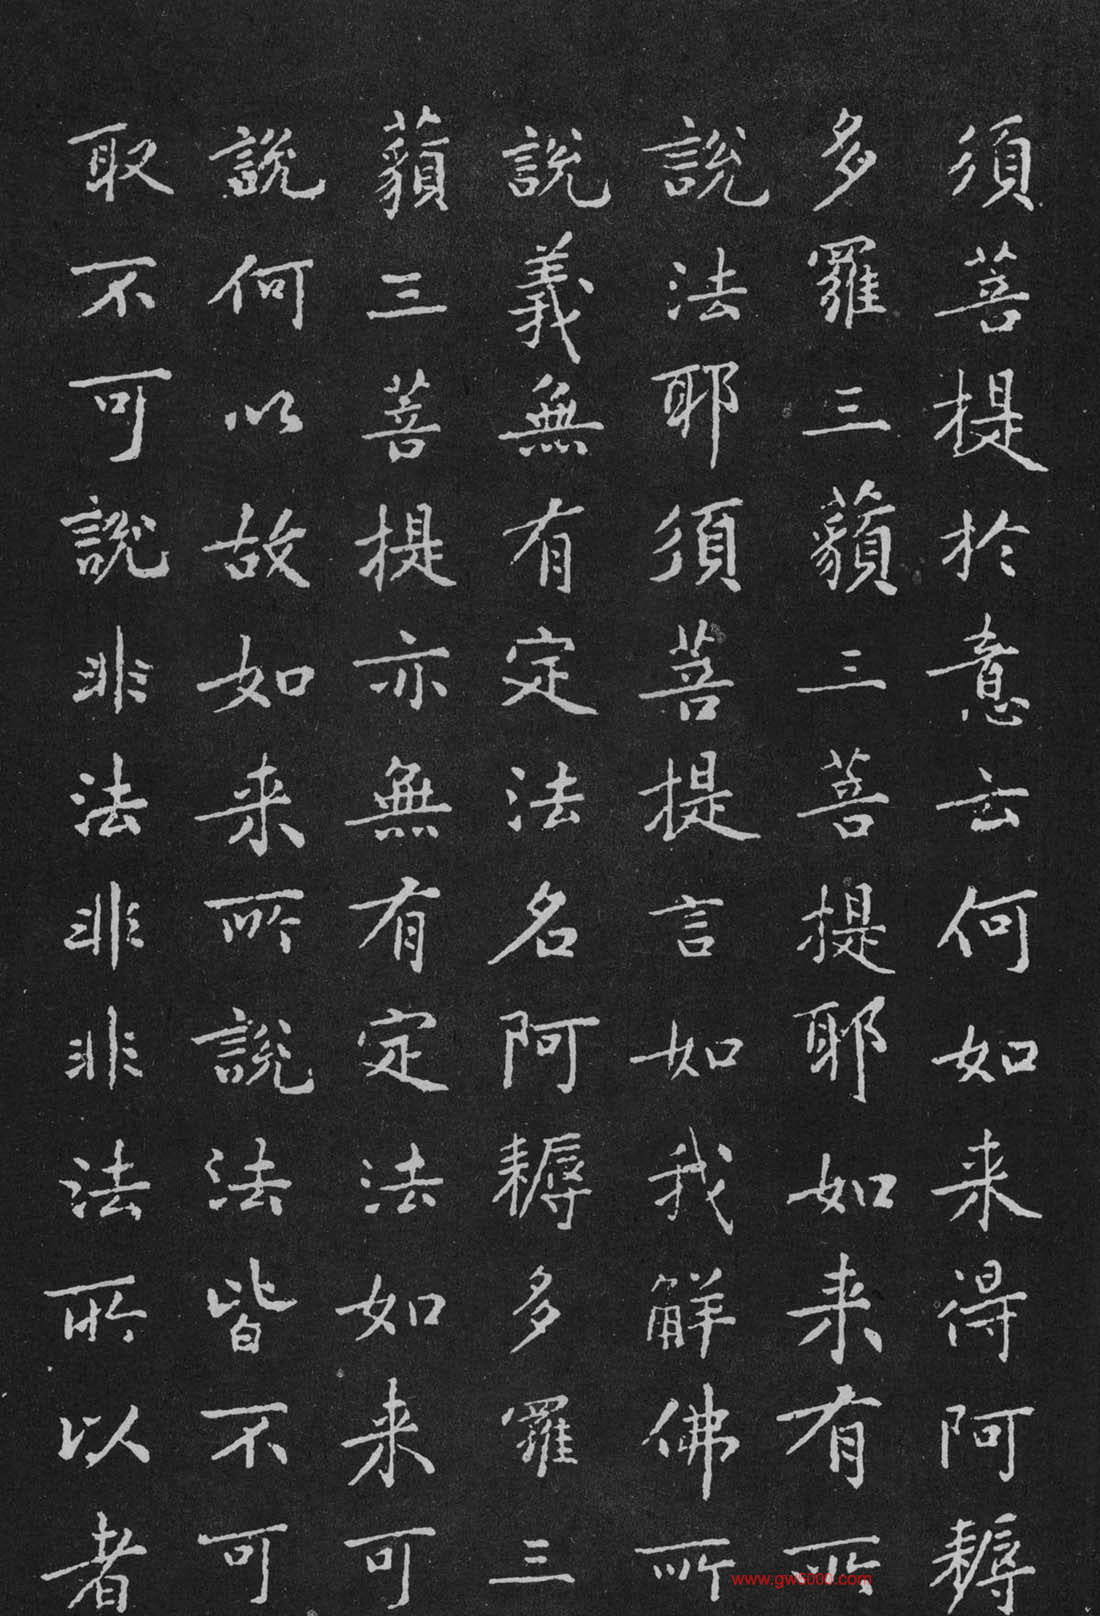 須菩提於意云何如来得阿耨
多羅三藐三菩提耶如来有所
說法耶須菩提言如我解佛所
說義無有定法名阿耨多羅三
藐三菩提亦無有定法如来可
說何以故如来所說法皆不可
取不可說非法非非法所以者
www.gw5000.com